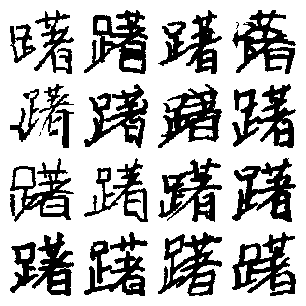 躇躇躇躇
躇躇躇躇
躇躇躇躇
躇躇躇躇